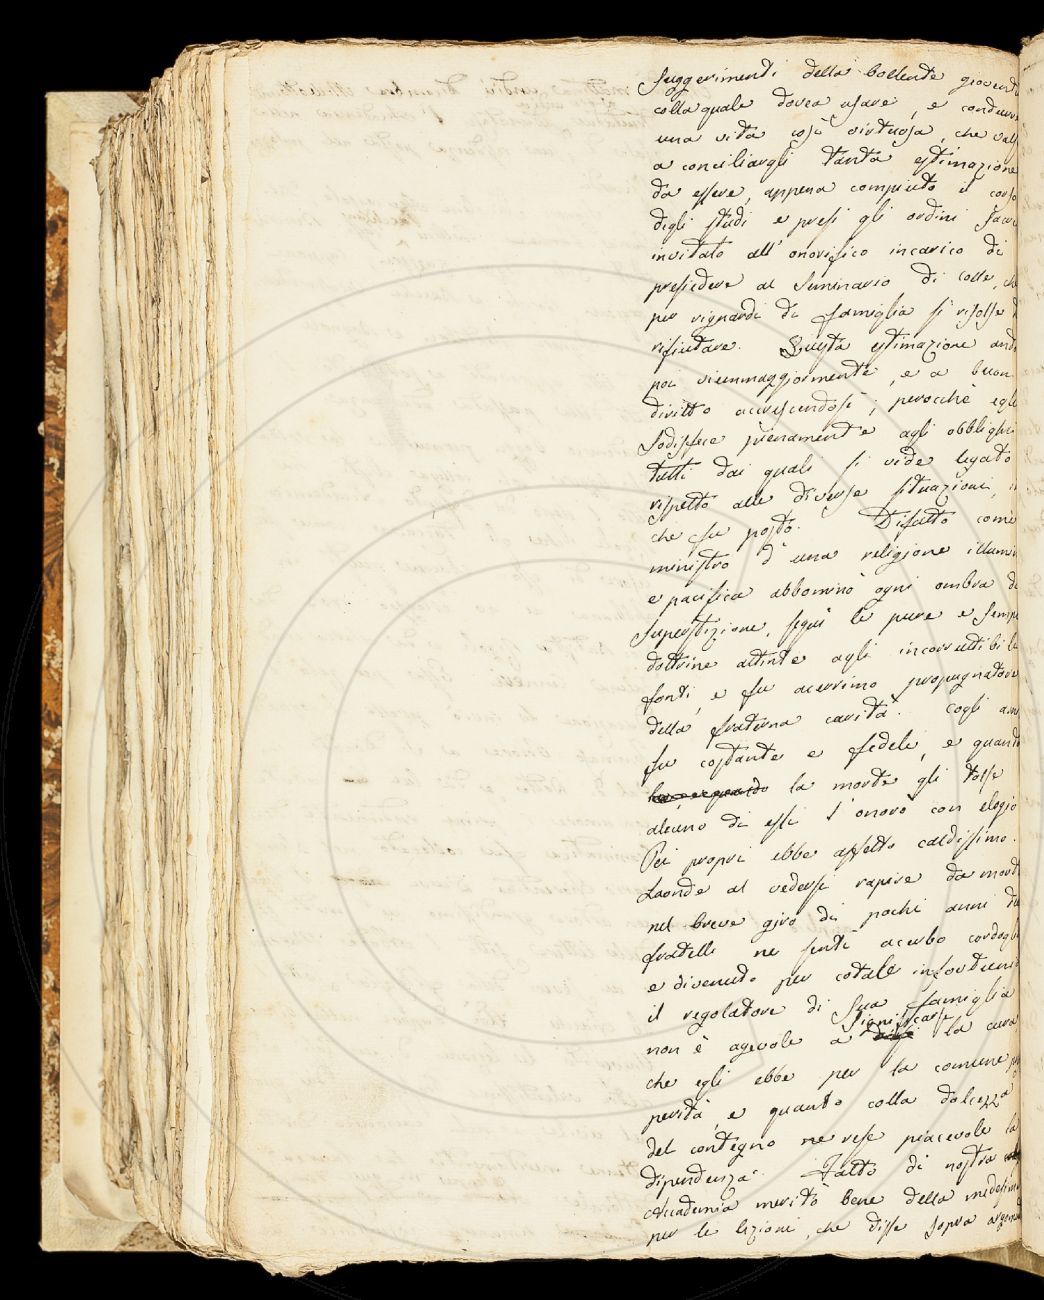 suggerimenti della bollente giovent
colla quale dovea usare, e condurre
una vita così virtuosa, che vals
a conciliargli tanta estimazione
da essere, appena compiuto il corso
degli studi e presi gli ordini sacri
invitato all'onorifico incarico di
presiedere al Seminario di Colle, ch
per riguardi di famiglia si risolse d
rifiutare. Questa estimazione andò
poi viemmaggiormente, e a buon
diritto accrescendosi; perocchè egli
sodisfece pienamente agli obblighi
tutti dai quali si vide legato
rispetto alle diverse situazioni, i
che fu posto. Difatto come
ministro d'una religione illumin
e pacifica abbominò ogni ombra di
superstizione, seguì le pure e semp
dottrine attinte agli incorruttibili
fonti, e fu acerrimo propugnatore
della fraterna carità. Cogli ami
fu costante e fedele, e quando
la morte gli tolse
alcuno di essi l'onorò con elogio
Pei propri ebbe affetto caldissimo.
Laonde al vedersi rapire da morte
nel breve giro di pochi anni du
fratelli ne sentì acerbo cordogli
e divenuto per cotale infortunio
il regolatore di sua famiglia
non è agevole a significarsi la cura
che egli ebbe per la comune pr
perità, e quanto colla dolcezza
del contegno ne rese piacevole la
dipendenza. Fatto di nostra
Accademia meritò bene della medesima
per le lezioni, che disse sopra argomen